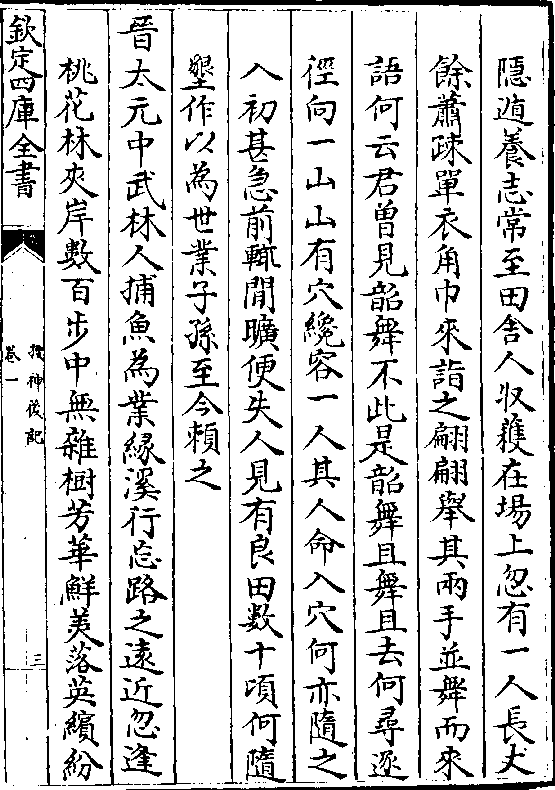 隱遁養志常至田舍人收穫在塲上忽有一人長丈
餘蕭疎單衣角巾來詣之翩翩舉其兩手並舞而來
語何云君曽見韶舞不此是韶舞且舞且去何尋逐
徑向一山山有穴纔容一人其人命入穴何亦隨之
入初甚急前輙閒曠便失人見有良田數十頃何隨
墾作以為世業子孫至今賴之
晉太元中武林人捕魚為業緣溪行忘路之遠近忽逢
桃花林夾岸數百步中無雜樹芳華鮮美落英繽紛
欽定四庫全書
搜神後記
卷一
三